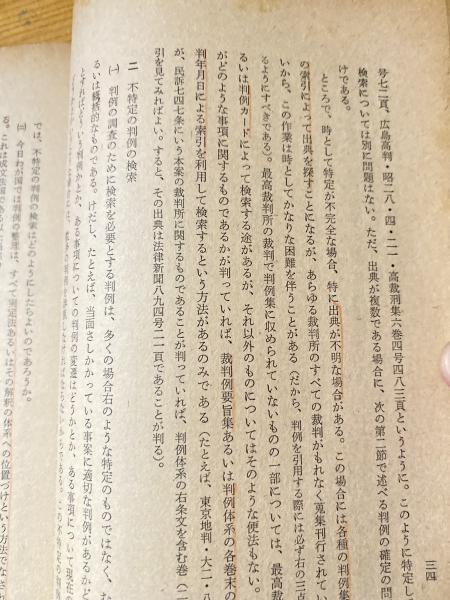 三四
号七二頁、広島高判・昭二八・四・二一・高裁刑集六巻四号四八三頁というように。このように特定し
検索については別に問題はない。ただ、出典が複数である場合に、次の第二節で述べる判例の確定の問
けである。
ところで、時として特定が不完全な場合、特に出典が不明な場合がある。この場合には各種の判例集
の索引によって出典を探すことになるが、あらゆる裁判所のすべての裁判がもれなく蒐集刊行されてい
いから、この作業は時としてかなりな困難を伴うことがある（だから、判例を引用する際には必ず右の三点
るようにすべきである）。最高裁判所の裁判で判例集に収められていないものの一部については、最高裁
るいは判例カードによって検索する途があるが、それ以外のものについてはそのような便法もない。
がどのような事項に関するものであるかが判っていれば、裁判例要旨集あるいは判例体系の各巻末の
判年月日による索引を利用して検索するという方法があるのみである（たとえば、東京地判・大二・八
が、民訴七四七条にいう本案の裁判所に関するものであることが判っていれば、判例体系の右条文を含む巻（二
引を見てみればよい。すると、その出典は法律新聞八九四号二一頁であることが判る）。
二　不特定の判例の検索
㈠　判例の調査のために検索を必要とする判例は、多くの場合右のような特定のものではなく、な
るいは概括的なものである。けだし、たとえば、当面さしかかっている事案に適切な判例があるかど
とすればどういう判例かとか、ある事項についての判例の変遷はどうかとか、ある事項について現在の
では、不特定の判例の検索はどのようにしたらよいのであろうか。
㈡　今日わが国では判例の整理は、すべて制定法あるいはその解釈の体系への位置づけという方法でなされ
る。これは成文法国である以上